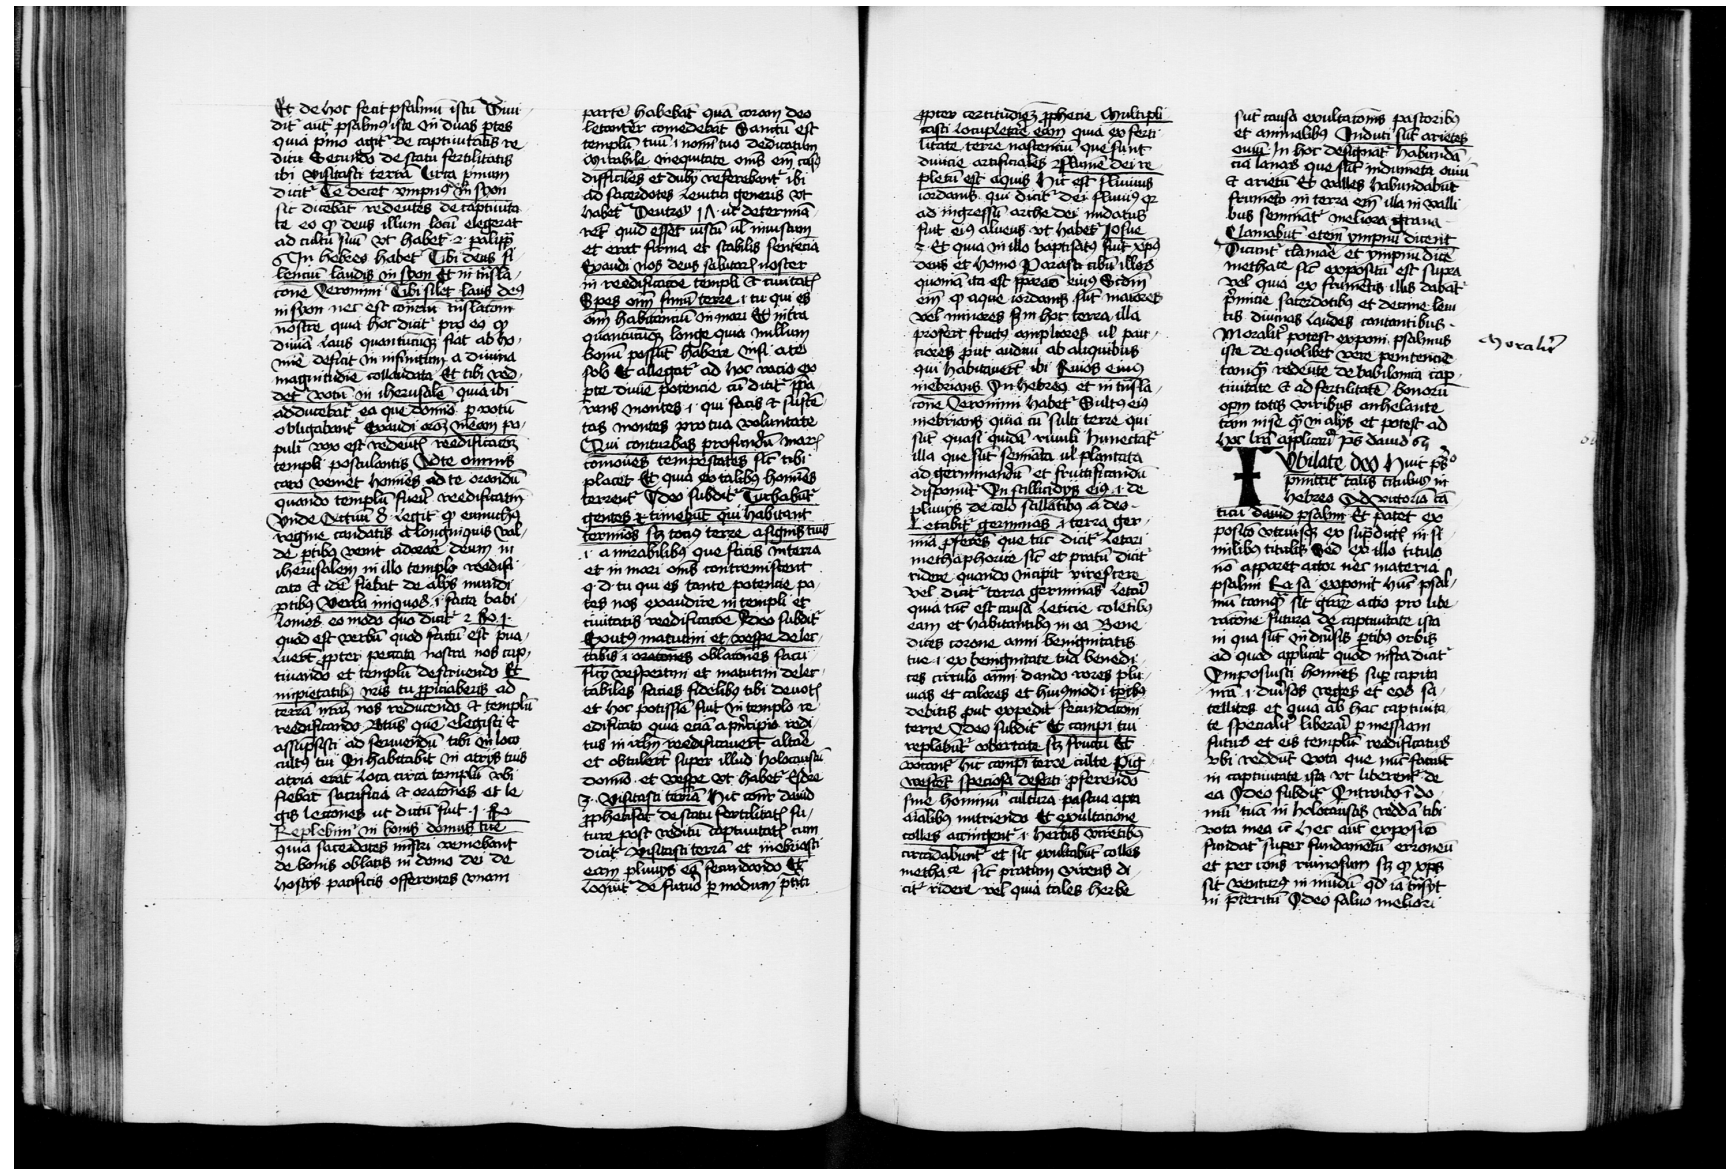 Et de hoc fecit psalmū istū Diui
dit̄ aūt psalmꝰ iste in duas ptes
quia pͥmo agit̄ de captiuitatis re
ditu Secundo de statu fertilitatis
ibi visitasti terrā Circa pͥmum
dicit̄ Te decet ympnꝰ in syon
sic dicebāt redeūtes de captiuita
te eo qꝫ deus illum locū elegerat
ad cultū suū vt habet̄ 2 palipp̄
6 In hebreo habet̄ Tibi deus si
lenciū laudis in syon Et in tn̄sla
cōne Jeronimi Tibi silet laus deꝰ
in syon nec est cōtrariū tn̄slacōni
nostre quia hoc dicit̄ pro eo qꝫ
diuīa laus quantūcūqꝫ fiat ab ho
mīe deficit in infinitum a diuina
magnitudīe collaudata Et tibi red
det̄ votū in iherusalē quia ibi
adducebāt̄ ea que domīo p votū
obligabant̄ Exaudi orōꝫ meam po
puli vox est redeūt̄ reedificacōꝫ
templi postulantis Ad te omnis
caro veniet homīes ad te orandū
quando templū fuerit̄ reedificatū
Vnde Actuū 8 legit̄ qꝫ eunuchꝰ
regine candatis a longinquis val
de ptibꝰ venit adorare deum in
iherusalem in illo templo reedifi
cato Et idē fiebat de alijs mundi
ptibꝰ Verba iniquoꝝ i facta babi
lonies eo modo quo dicit̄ 2 Rͤ 1
quod est verbū quod factū est pua
luert̄ ppter peccata nostra nos cap
tiuando et templū destruendo Et
impietatibꝰ nr̄is tu ppiciaberis ad
terrā nr̄aꝫ nos reducendo Et templū
reedificando Btūs quē elegisti Et
assūpsisti ad seruiendū tibi in loco
cultꝰ tui Inhabitabit in atrijs tuis
atria erāt loca circa templū vbi
fiebāt sacrificia Et oratōnes et le
gis lectōnes ut dictū fuit 1 Rͤ
Replebim̄ in bonis domus tue
quia sacerdotes ministri veniebant
de bonis oblatis in domo dei de
hostijs pacificis offerentes vnam
partē habebāt quā coram deo
letanter comedebāt Sanctū est
templū tuū i nomī tuo dedicatum
Mirabile in equitate om̄is eni caſꝰ
difficiles et dubij referebant̄ ibi
ad sacerdotes leuitici generis vt
habet̄ Deutroꝫ 17 ut determīa
ret̄ quid esset iustū ul̄ iniustum
et erat firma et stabilis sentēcia
Exaudi nos deus salutarꝫ noster
in reedificacōe templi Et ciuitat̄
Spes om̄ finiū terre i tu qui es
om̄ habitanciū in mari Et in tra
quantūcūqꝫ longe quia nullum
bonū possūt habere nisi a te
solo Et allegat̄ ad hoc racio ex
pte diuīe potencie cū dicit̄ ppa
rans montes i qui facis Et susten
tas montes pro tua voluntate
Qui conturbas profundū mar̄
cōmoues tempestates sic̄ tibi
placet Et quia ex talibus homīes
terrent̄ Ideo subdit̄ Turbabūt̄
gentes Et timebūt qui habitant
terminos sꝫ totiꝰ terre a signis tuis
i a mirabilibꝰ que facis in terra
et in mari om̄s contremiscent
q d tu qui es tante potencie po
tes nos exaudire in templi et
ciuitatis reedificacōe Ideo subdit̄
Exitus matutini et vespe delec
tabis i oratōnes oblatōnes sacri
ficij vespertini et matutini delec
tabiles facies fidelibꝰ tibi deuot̄
et hoc potissīe fuit in templo re
edificato quia eciā a pͥncipio redi
tus in ihr̄lm reedificauert̄ altare
et obtulert̄ super illud holocaustū
domīo et vespe vt habet̄ Esdre
3 Visitasti terrā Hic con̄t̄ dauid
pphetisat̄ de statu fertilitat̄ fu
ture post reditū captiuitat̄ cum
dicit̄ visitasti terrā et inebriasti
eam pluuijs eā fecundando Et
loquit̄ de futuro p modum p̄teti
ppter certitudīeꝫ pphecie Multipli
casti locupletare eam quia ex ferti
litate terre nascenciū que sunt
diuicie artificiales Flumē dei re
pletū est aquis Hic est fluuius
iordanis qui dicit̄ dei fluuiꝰ qꝛ
ad ingressū arche dei nudatus
fuit eiꝰ alueus vt habet̄ Josue
3 Et quia in illo baptisatꝰ fuit xp̄s
deus et homo Parasti cibū illoꝝ
quoniā ita est pparaco eiꝰ Scdm̄
em̄ qꝫ aque iordanis sūt maiores
vel minores sm̄ hoc terra illa
profert fructꝰ ampliores ul̄ pau
ciores put audiui ab aliquibus
qui habitauert̄ ibi Riuos eiꝰ
inebrians In hebreo et in tn̄sla
cōne Jeronimi habet̄ Sulcꝰ eiꝰ
inebrians quia cū sulci terre qui
sūt quasi quidā riuuli humectāt̄
illa que sūt semīata ul̄ plantata
ad germinandū et fructificandū
disponūt In stillicidijs eiꝰ i de
pluuijs de celo stillatibꝰ a deo
Letabit̄ germinās i terra ger
mīa pferēs que tūc dicit̄ letari
methaphorice sic̄ et pratū dicit̄
ridere quando incipit virescere
vel dicit̄ terra germinās letari
quia tūc est causa leticie colētibꝰ
eam et habitantibus in ea Bene
dices corone anni benignitatis
tue i ex benignitate tua benedi
ces circulo anni dando rores plu
uias et calores et huiusmodi tpibꝰ
debitis put expedit fecundatōni
terre Ideo subdit̄ Et campi tui
replebūt̄ vbertate sꝫ fructū Et
vocant̄ hic campi terre culte Pīg
uescēt speciosa deserti pferendo
sine hominū cultura pascua apta
aīalibus nutriendo Et exultacione
colles accingent̄ i herbis virētibꝰ
circūdabunt̄ et sic exultabūt colles
methace sic̄ pratum virens di
cit̄ ridere vel quia tales herbe
sūt causa exultatōnis pastoribꝰ
et animalibꝰ Induti sūt arietes
ouiū In hoc designat̄ habundā
cia lanaꝝ que sūt indumēta ouiū
Et arietū Et valles habundabūt
frumēto in terra em̄ illa in valli
bus semināt̄ meliora grana
Clamabūt etem̄ ympnū dicent
Dicunt̄ clamare et ympnū dicē
methace sic̄ expositū est supra
vel quia ex frumētis illis dabāt̄
pͥmicie sacerdotibꝰ et decime leui
tis diuinas laudes cantantibus
Moralit̄ potest exponi psalmus
iste de quolibet vere penitencie
tamqꝫ redeūte de babilonica cap
tiuitate Et ad fertilitatē bonoꝝ
opm̄ totis viribus anhelante
tam in se qꝫ in alijs et potest ad
hoc lr̄a applicari Ps dauid 65
Iubilate deo Huic pso
pmittit̄ talis titulus in
hebreo Ad victoriā cā
ticū dauid psalmi Et patet ex
posicō vtriusqꝫ ex supͥdictꝭ in si
milibus titulis Sed ex illo titulo
nō apparet actor nec materia
psalmi Ra sa exponit hūc psal
mū tamqꝫ sit gr̄aꝝ actio pro libe
racōne futura de captiuitate ista
in qua sūt in diuersis ptibus orbis
ad quod applicāt quod infra dicit̄
Imposuisti homīes sup capita
nr̄a i diuersos reges et eoꝝ sa
tellites et quia ab hac captiuita
te specialit̄ liberari p messiam
futuꝝ et eis templū reedificaturꝰ
vbi reddūt vota que nūc faciūt
in captiuitate ista vt liberent̄ de
ea Ideo subdit̄ Introibo i do
mū tuā in holocaustis reddā tibi
vota mea ic̄ Hec aūt exposicō
fundat̄ super fundamētū erroneū
et per cōns ruinosum sꝫ qꝫ xp̄s
sit venturꝰ in mūdū qd̄ iā tn̄sijt
in p̄teritū Ideo saluo meliori
Moralit̄